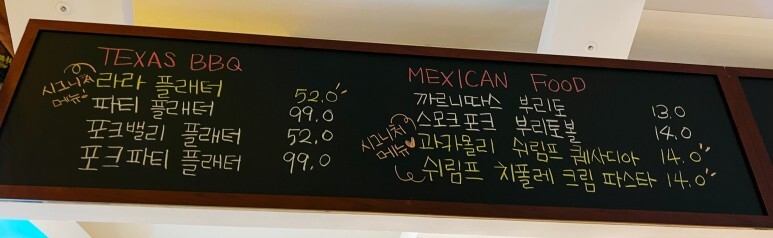 TEXAS BBQ
시그니처
메뉴!
라라 플래터 52.0
파티 플래터 99.0
포크밸리 플래터 52.0
포크파티 플래터 99.0
MEXICAN FOOD
까르니따스 부리또 13.0
스모크포크 부리또볼 14.0
시그니처
메뉴
과카몰리 쉬림프 퀘사디아 14.0
쉬림프 치폴레 크림 파스타 14.0